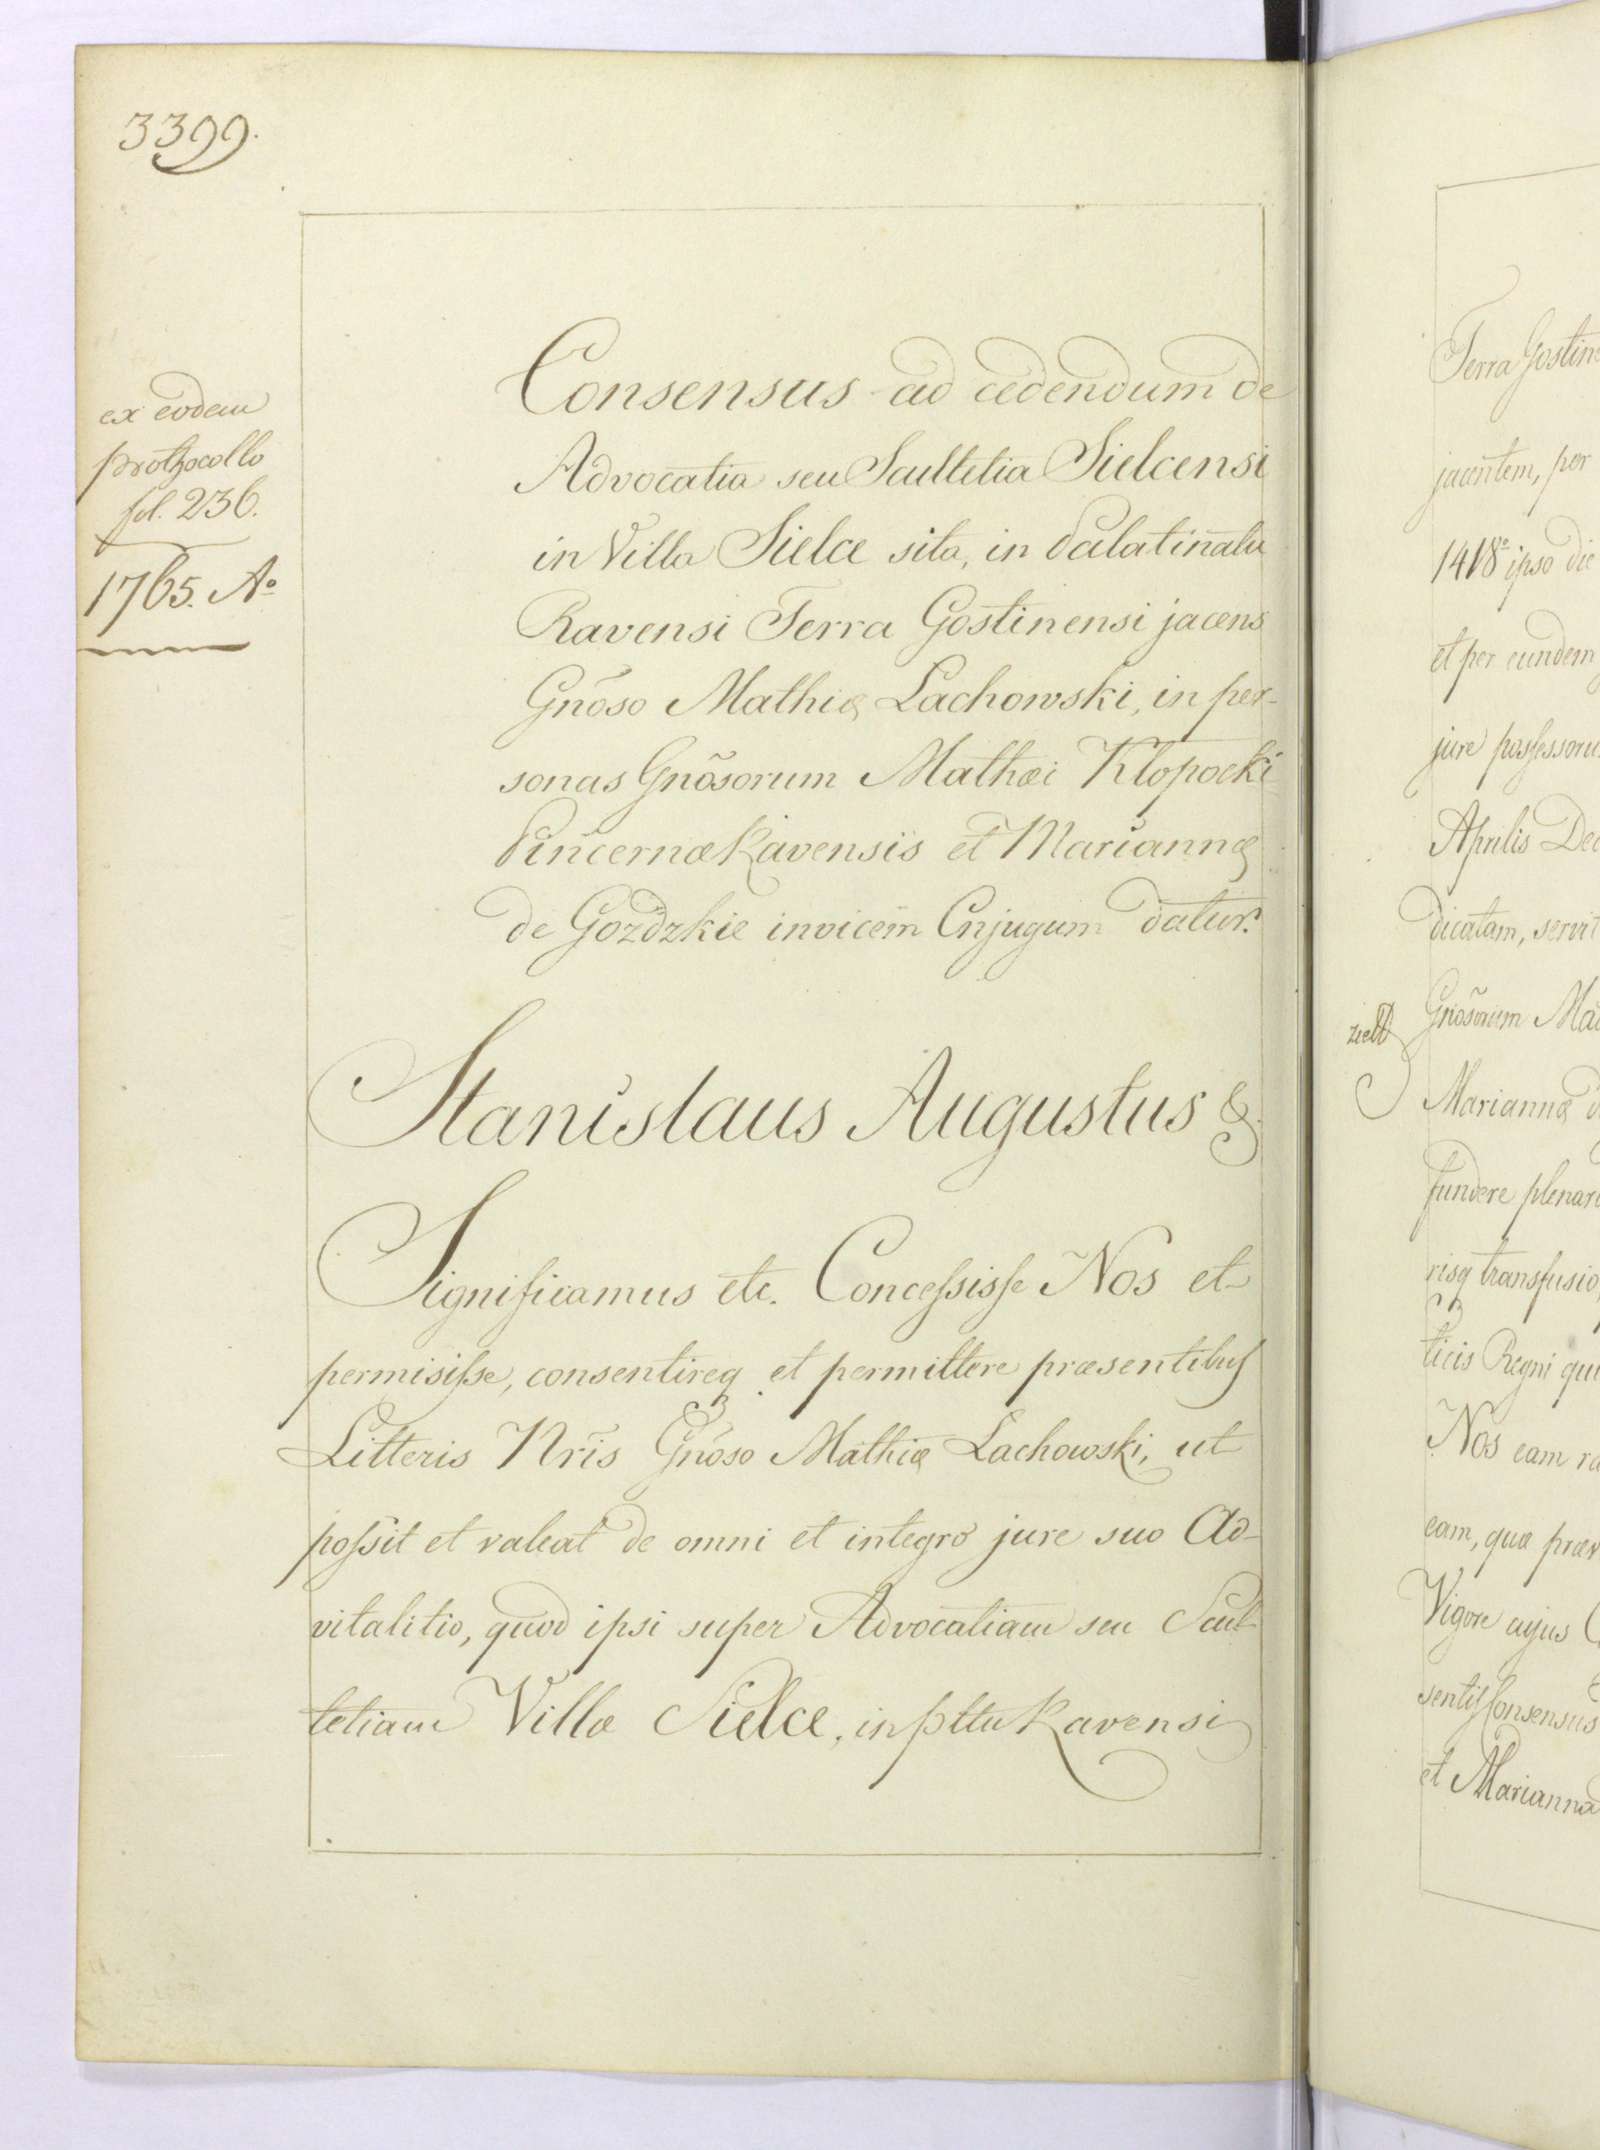 3399.
ex eodem
prothocollo
fol. 236.
1765. Aº
Consensus ad cedendum de
Advocatia seu Scultetia Sielcensi
in Villa Sielce sita, in Palatinatu
Ravensi Terra Gostinensi jacens
Gnõso Mathiæ Lachowski, in per-
sonas Gnõsorum Mathæi Kłopocki
Pincernæ Ravensis et Mariannæ
de Gozdzkie invicem Cnjugum datur.
Stanislaus Augustus &.
Significamus etc. Concessisse Nos et
permisisse, consentireq et permittere præsentibus
Litteris Nris Gnõso Mathiæ Lachowski, ut
possit et valeat de omni et integro jure suo Ad-
vitalitio, quod ipsi super Advocatiam seu Scul-
tetiam Villæ Sielce, in pttu Ravensi
Terra Gostin
jacentem, per
1418º ipso die
et per eundem
jure possessoru
Aprilis Dec
dicatam, servit
Gnõsorum Ma
Mariannæ d
fundere plenari
risq transfusio
ticis Regni qui
Nos eam ra
eam, quæ præv
Vigore cujus C
sentis Consensus
et Marianna